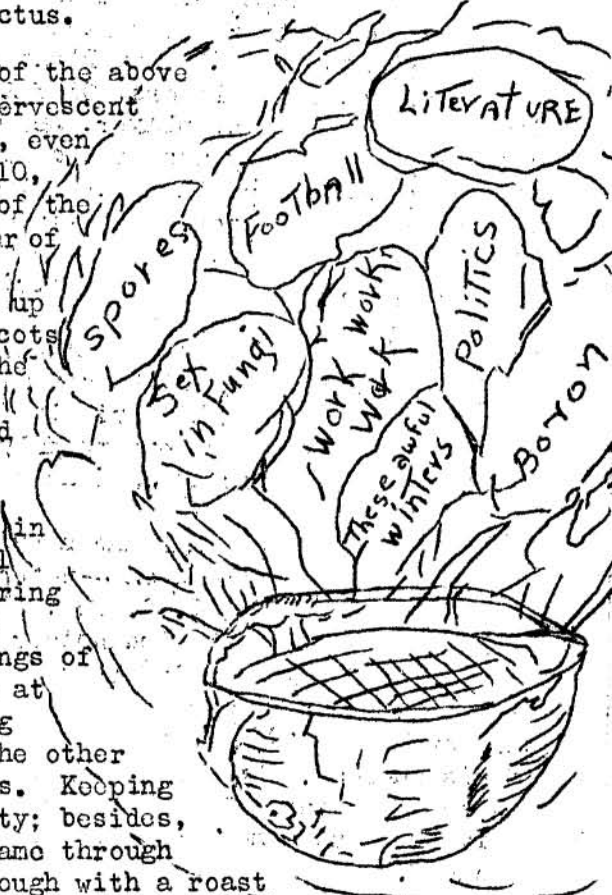 ctus.
of the above
ervescent
, even
10,
of the
ar of
up
cots
he
d
in
l
ring
ngs of
at
g
he other
s. Keeping
ty; besides,
ame through
ough with a roast
LiTerATURE
FooTbAll
Spores
Sex
in Fungi
work work
work
PoliTiCS
These awful
winters
Boron